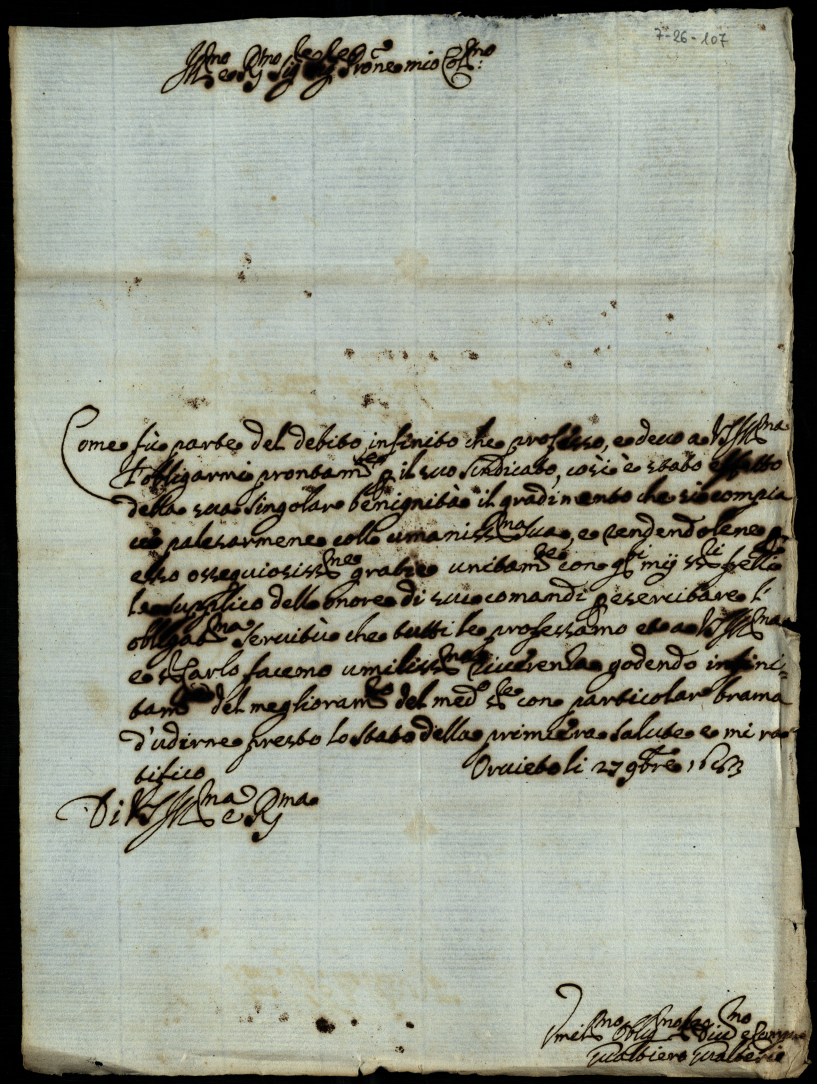 7-26-107
Ill.mo e R.mo Sig.re Sig.re Prone mio Col.mo
Come fù parte del debito infinito che professo, e devo a VS Ill.ma
l'obligarmi prontam.te p il suo Sindicato, così è stato effetto
della sua singolar benignità il gradimento che si compia
ce palesarmene coll umaniss.ma sua, e rendendolene p
esso ossequiosiss.me gratie unitam.te con q.ti miij ss.ri frelli
la supplico dell onore di suoi comandi p esercitare l'
obligat.ma servitù che tutti le professamo et a VS Ill.ma
e s.r Carlo facemo umiliss.ma riverenza godendo infini-
tam.te del meglioram.to del med.o s.re con particolar brama
d'udirne presto lo stato della primiera salute e mi ra-
tifico Orvieto li 27 9bre 1653
Di VS Ill.ma e R.ma
Umil.mo oblig.mo Ser.re
Gualtiero Gualtieri